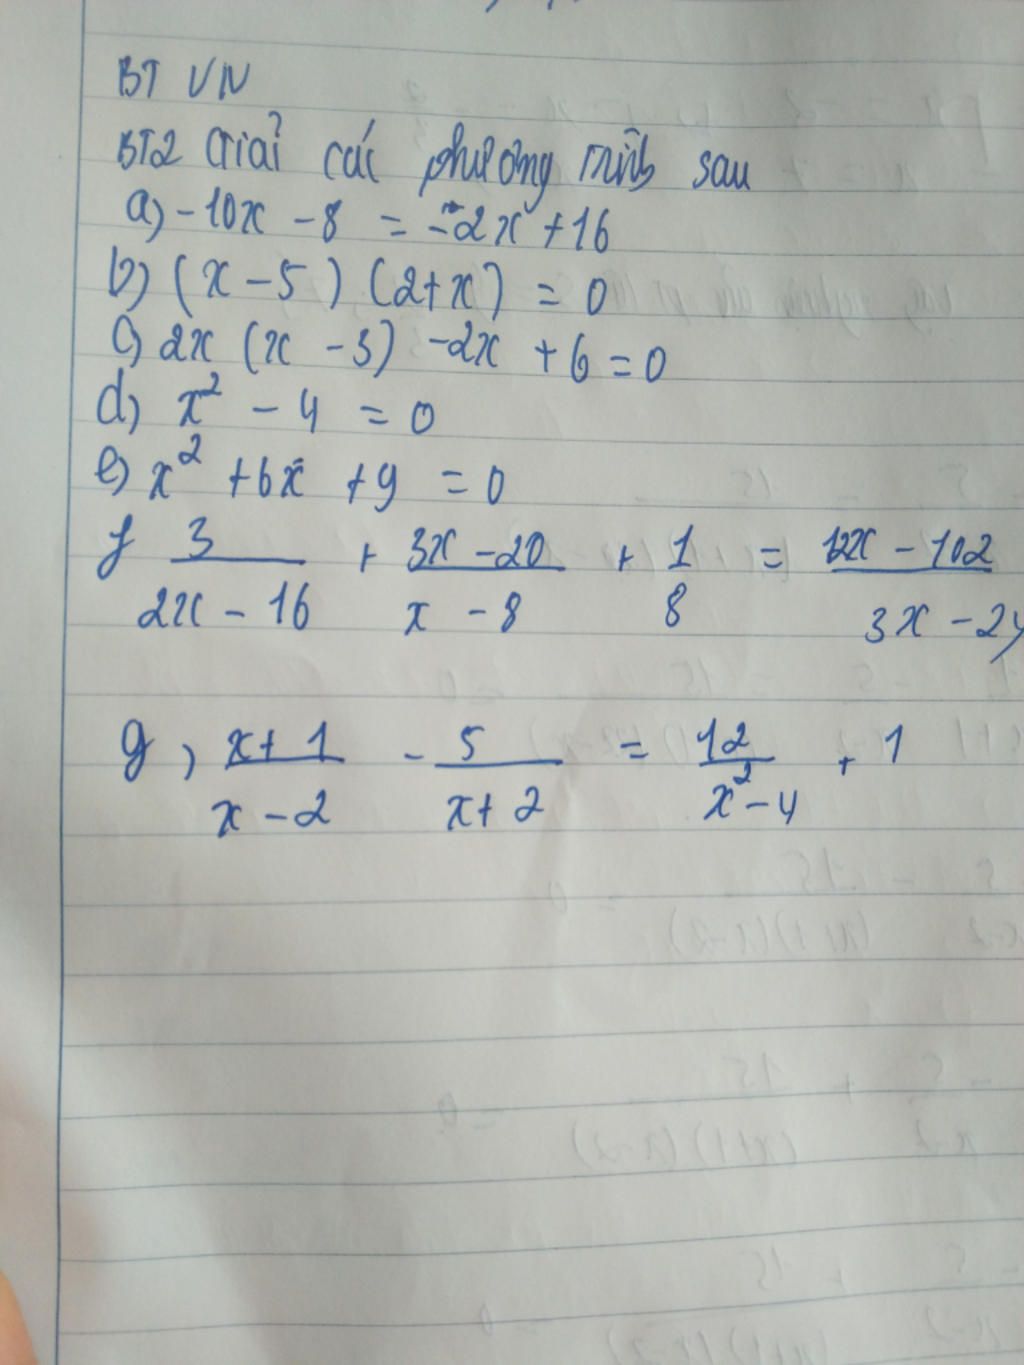 BT VN
BT2 Giải các phương trình sau
a) -10x - 8 = -2x + 16
b) (x - 5) (2 + x) = 0
c) 2x (x - 3) - 2x + 6 = 0
d) x² - 4 = 0
e) x² + 6x + 9 = 0
f 3/(2x - 16) + (3x - 20)/(x - 8) + 1/8 = (12x - 102)/(3x - 24)
g) (x + 1)/(x - 2) - 5/(x + 2) = 12/(x² - 4) + 1